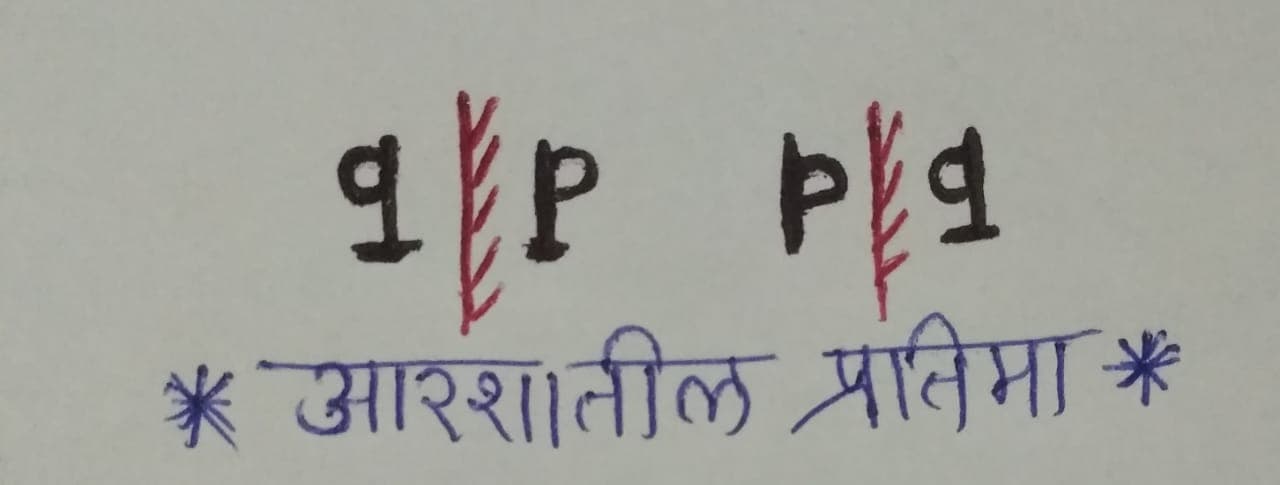 q p p q
* आरशातील प्रतिमा *